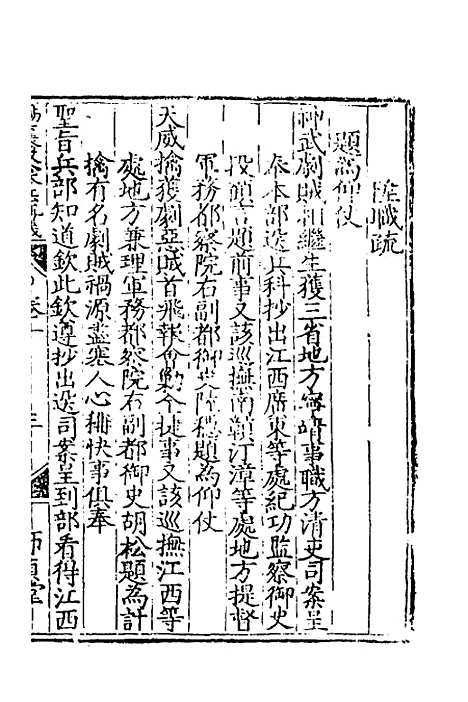 職疏
題為仰仗
神武劇賊相繼生獲三省地方寧靖事職方清吏司案呈
奉本部送兵科抄出江西廣東等處紀功監察御史
段顧言題前事又該巡撫南贑汀漳等處地方提督
軍務都察院右副都御史陸穩題為仰仗
天威擒獲劇惡賊首飛報會勦今捷事又該巡撫江西等
處地方兼理軍務都察院右副都御史胡松題為計
擒有名劇賊禍源盡塞人心稱快事俱奉
聖旨兵部知道欽此欽遵抄出送司案呈到部看得江西
卷一